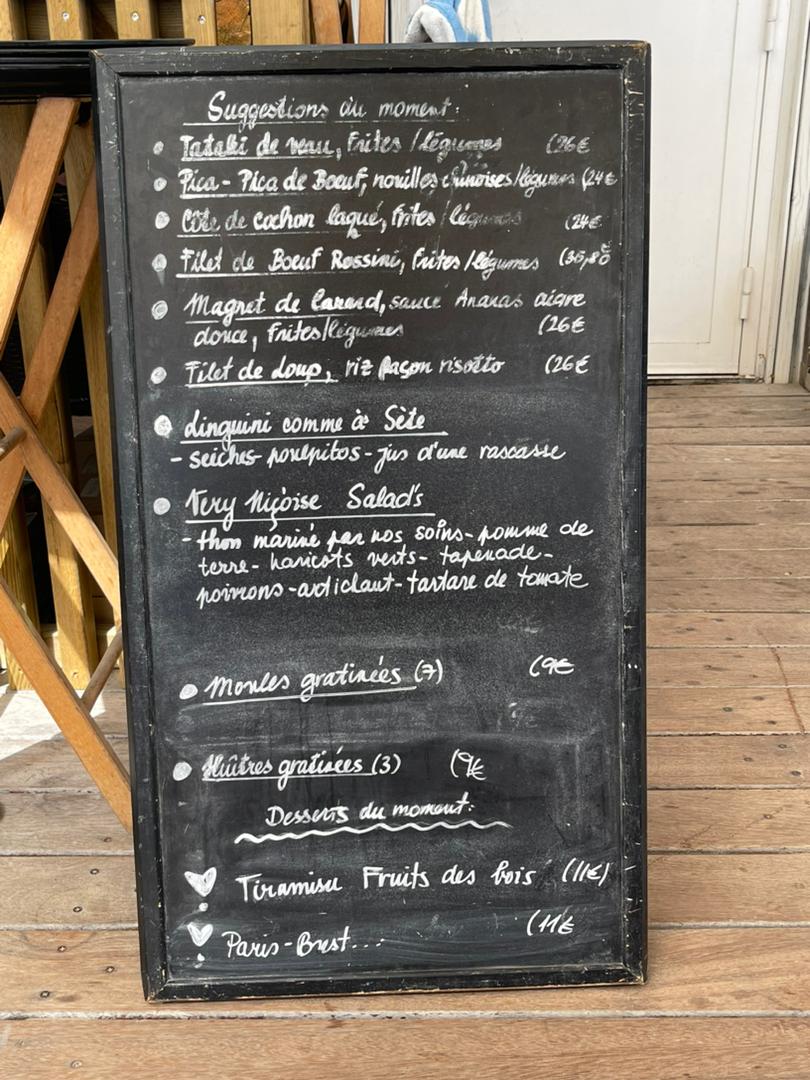 Suggestions du moment:
• Tataki de veau, frites / légumes (26€
• Pica - Pica de Boeuf, nouilles chinoises/légumes (24€
• Côte de cochon laqué, frites / légumes (24€
• Filet de Boeuf Rossini, frites / légumes (35,80€
• Magret de Canard, sauce Ananas aigre
douce, Frites/légumes (26€
• Filet de loup, riz façon risotto (26€
• Linguini comme à Sète
- seiches - poulpitos - jus d'une rascasse
• Very Niçoise Salad's
- thon mariné par nos soins - pomme de
terre - haricots verts - tapenade -
poivrons - artichaut - tartare de tomate
• Moules gratinées (7) (9€
• Huîtres gratinées (3) (9€
Desserts du moment:
Tiramisu Fruits des bois (11€)
Paris-Brest... (11€